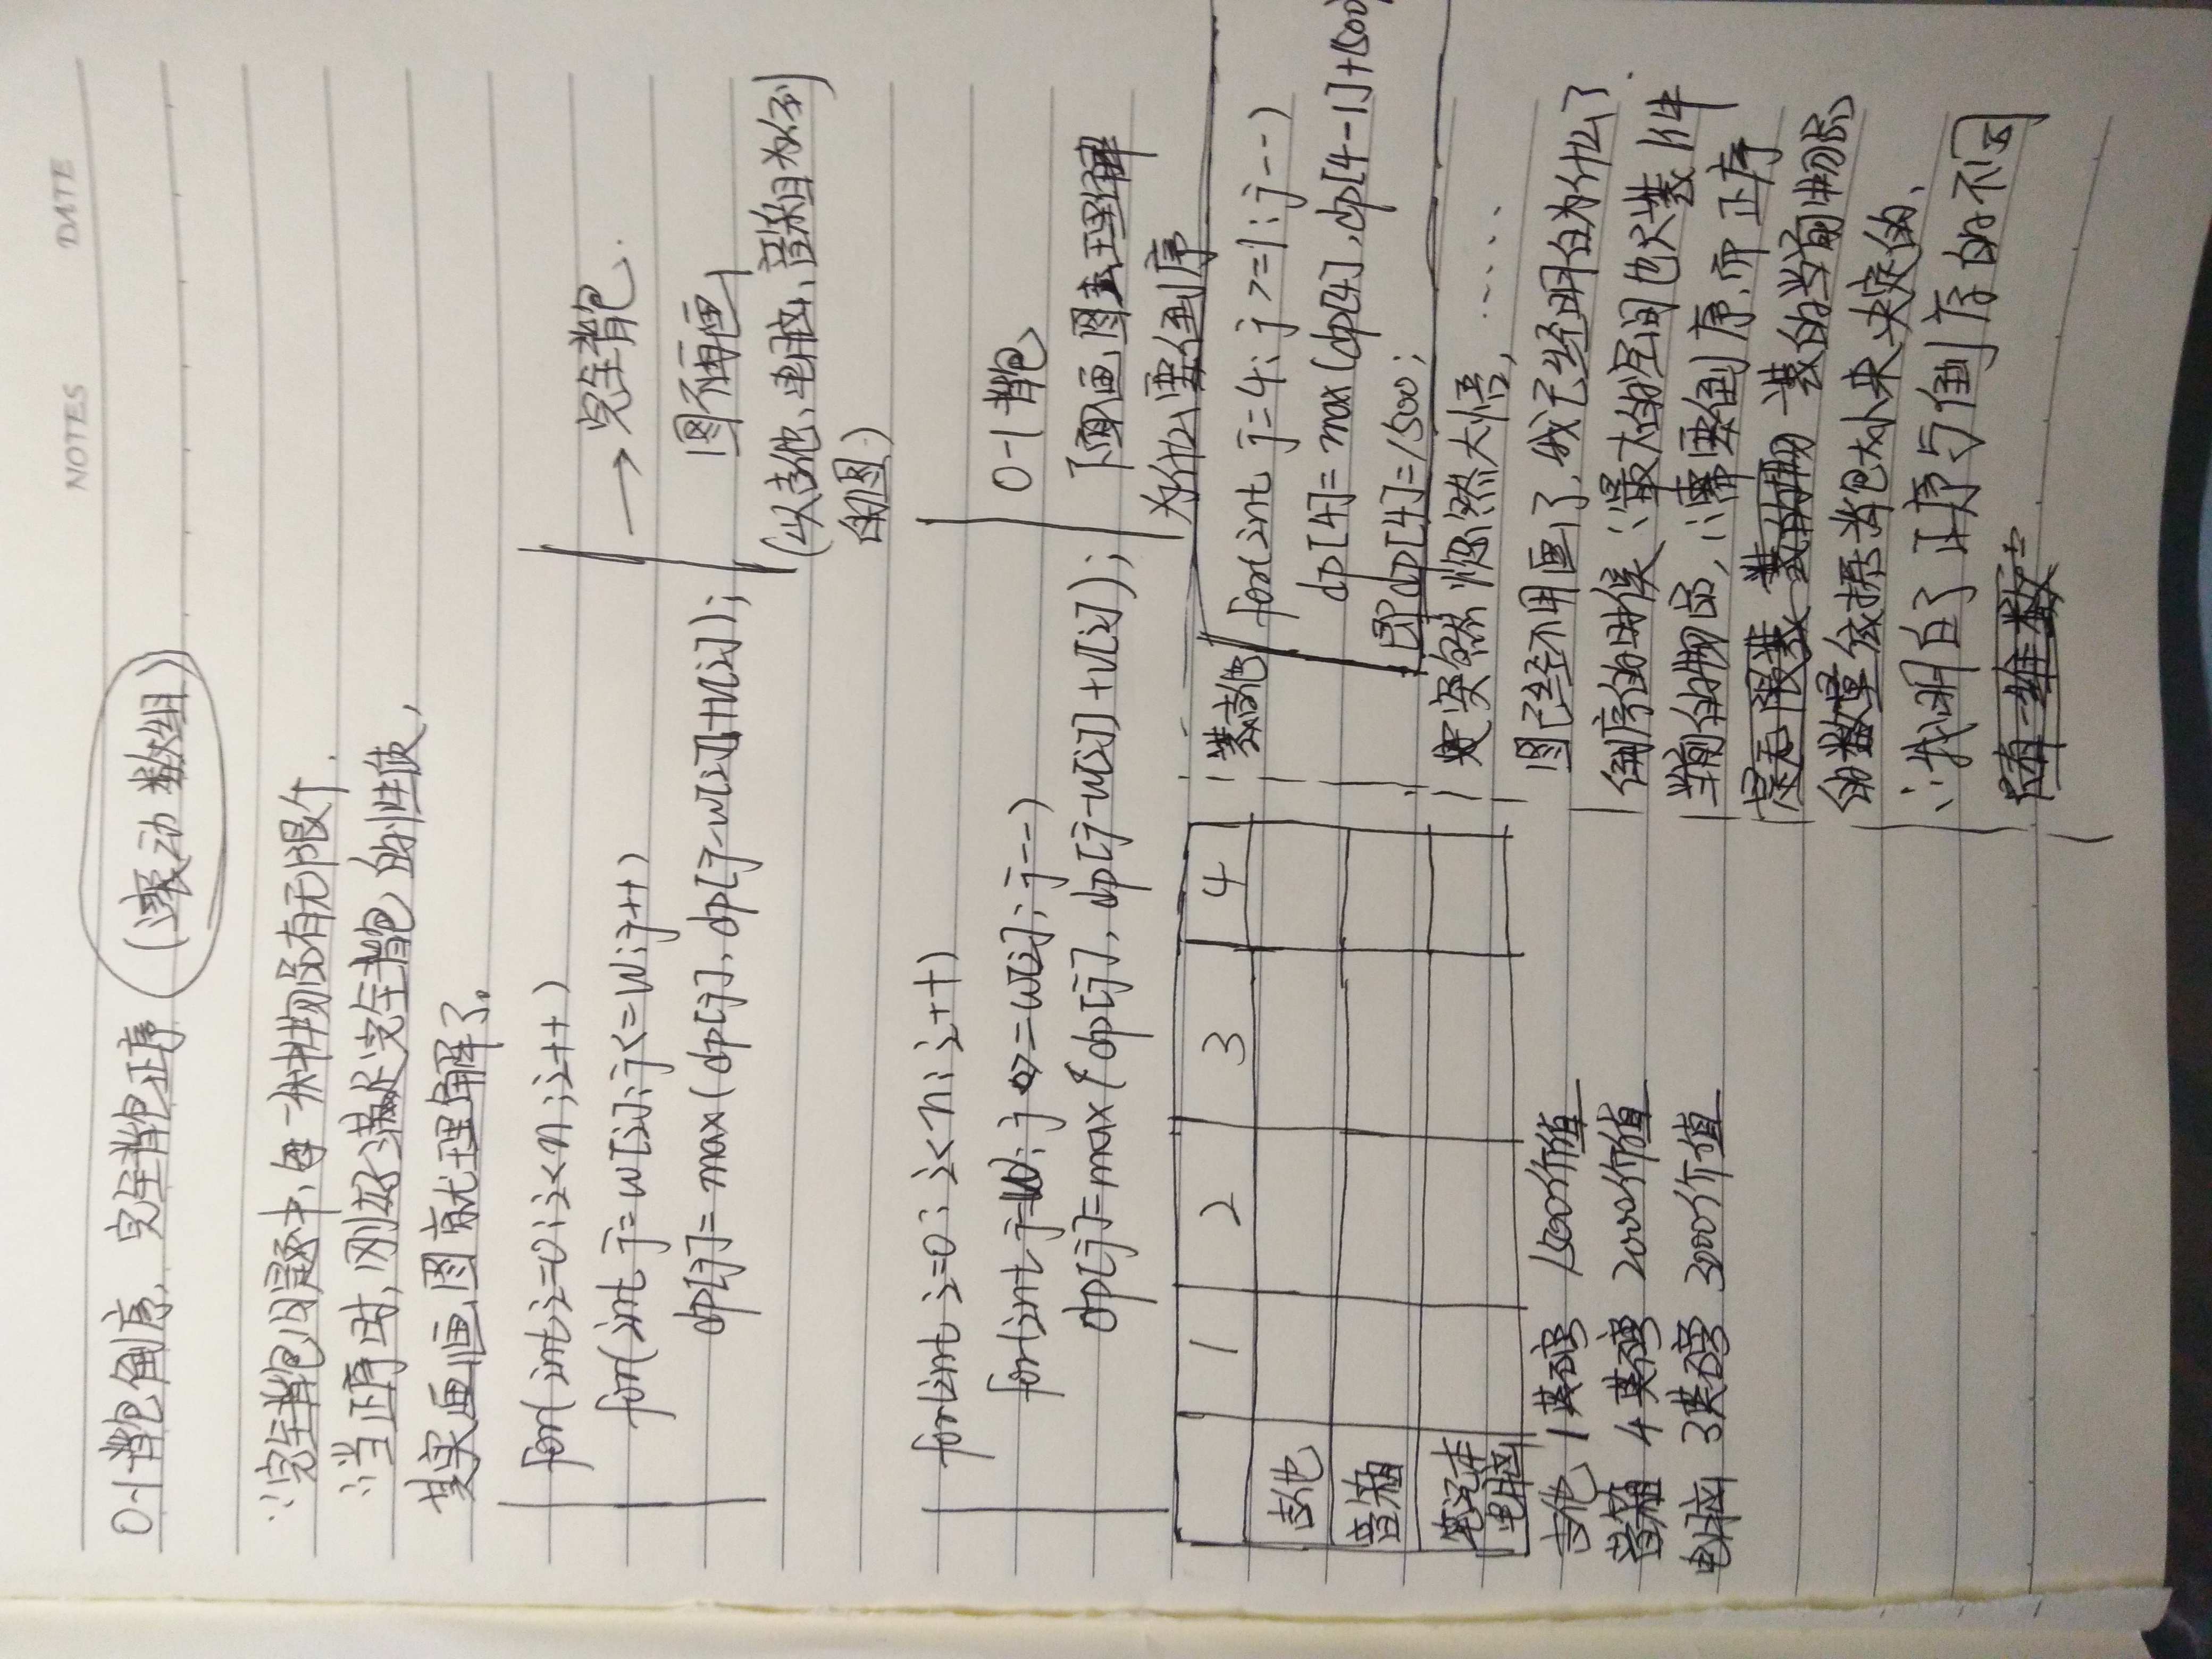 NOTES DATE
0-1背包倒序，完全背包正序 (滚动数组)
∵完全背包问题中，每一种物品有无限个.
∴当正序时，刚好满足完全背包的性质，
其实画画图就理解了。
for(int i=0;i<n;i++)
for(int j=w[i];j<=W;j++)
dp[j]=max(dp[j],dp[j-w[i]]+v[i]);
→完全背包.
图不再画
(以吉他、电脑、音箱为例
的图)
for(int i=0;i<n;i++)
for(int j=W;j>=w[i];j--)
dp[j]=max(dp[j],dp[j-w[i]]+v[i]);
0-1背包
下面画图去理解
为什么要倒序
1 2 3 4
吉他
音箱
笔记本
电脑
吉他 1英磅 1500价值
音箱 4英磅 2000价值
电脑 3英磅 3000价值
装吉他
for(int j=4;j>=1;j--)
dp[4]=max(dp[4],dp[4-1]+1500)
即dp[4]=1500;
突然恍然大悟，……
图已经不用画了，我已经明白为什么了
倒序的时候∵最大的空间也只装1件
当前的物品，∴需要倒序，而正序
是无限装 装的物 装的当前物品
的数量依据背包大小来决定的，
∴我明白了正序与倒序的不同
随一维数